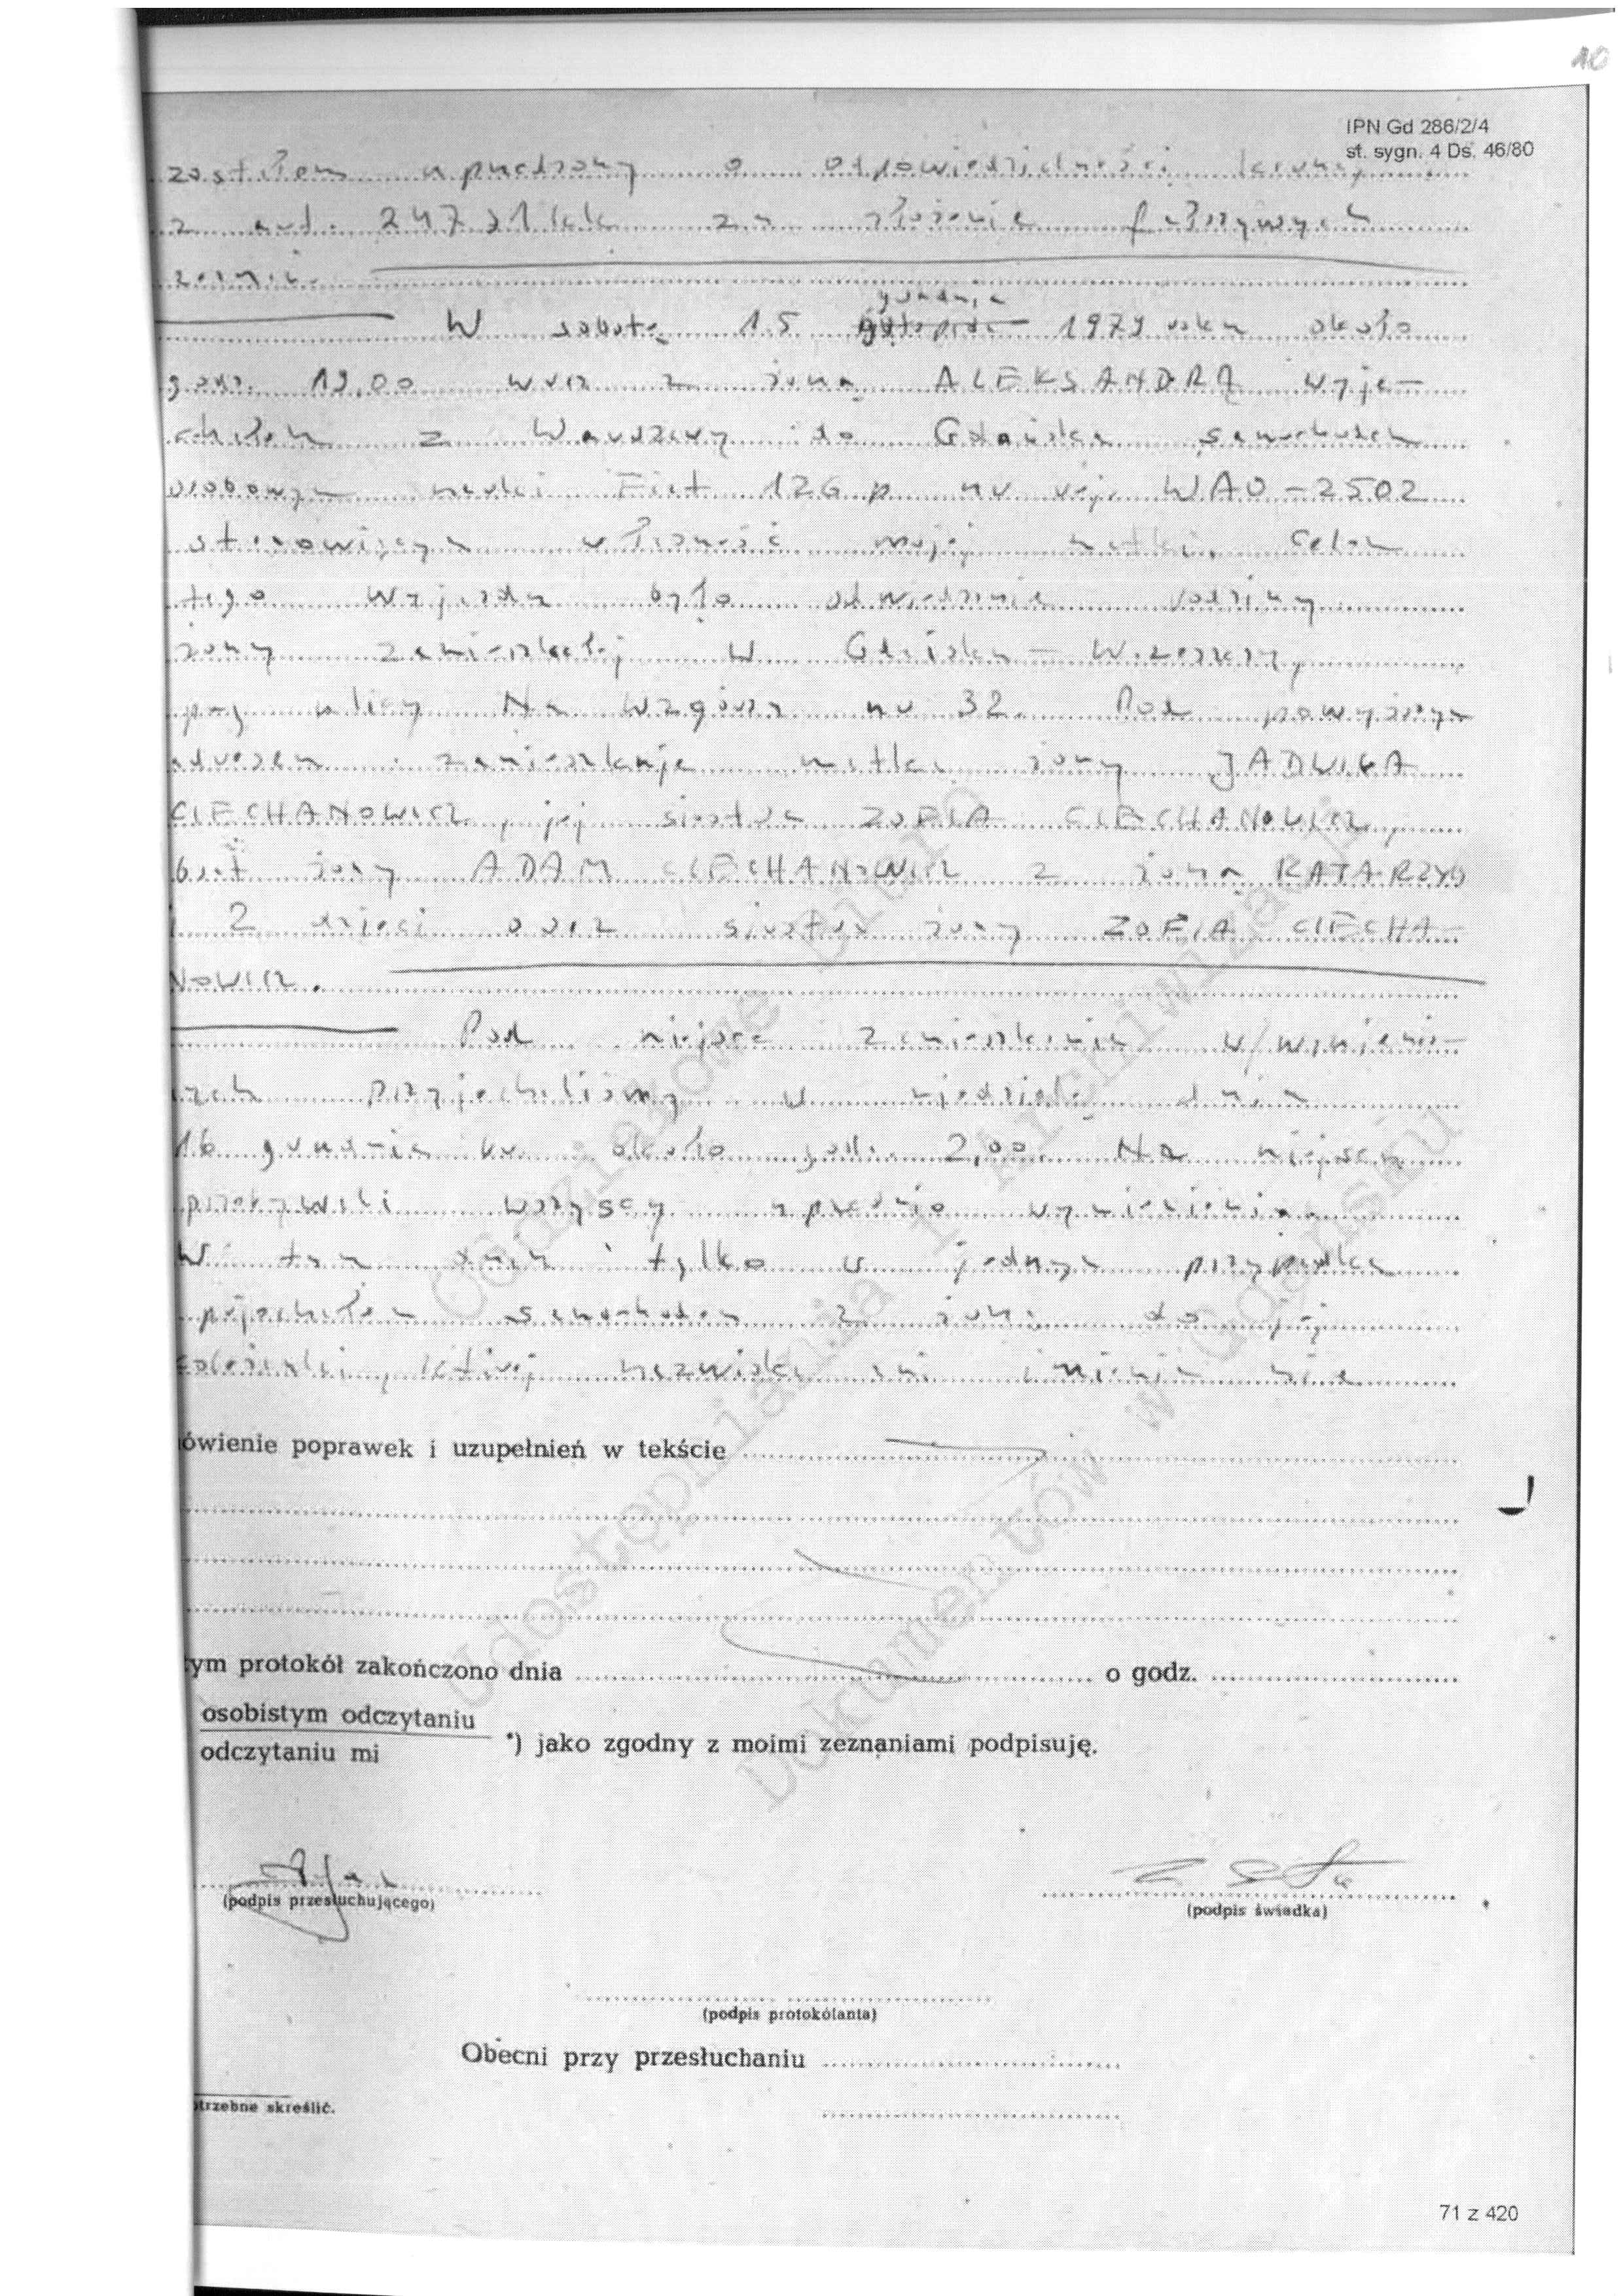 10
IPN Gd 286/2/4
st. sygn. 4 Ds. 46/80
zostałem uprzedzony o odpowiedzialności karnej
z art. 247 §1 kk za złożenie fałszywych
zeznań.
W sobotę 15 grudnia 1979 roku około
godz. 19,00 wraz z żoną ALEKSANDRĄ wyje-
chałem z Warszawy do Gdańska samochodem
osobowym marki Fiat 126 p nr rej. WAO-2502
stanowiącym własność mojej matki. Celem
tego wyjazdu było odwiedzenie rodziny
żony zamieszkałej w Gdańsku - Wrzeszczu,
przy ulicy Na Wzgórzu nr 32. Pod powyższym
adresem zamieszkuje matka żony JADWIGA
CIECHANOWICZ, jej siostra ZOFIA CIECHANOWICZ,
brat żony ADAM CIECHANOWICZ z żoną KATARZYNĄ
i 2 dzieci oraz siostra żony ZOFIA CIECHA-
NOWICZ.
Pod miejsce zamieszkania w/wymienio-
nych przyjechaliśmy w niedzielę dnia
16 grudnia br. około godz. 2,00. Na miejscu
przebywali wszyscy uprzednio wymienieni.
W tym dniu tylko w jednym przypadku
pojechałem samochodem z żoną do jej
koleżanki, której nazwiska ani imienia nie
ówienie poprawek i uzupełnień w tekście
tym protokół zakończono dnia o godz.
osobistym odczytaniu
odczytaniu mi *) jako zgodny z moimi zeznaniami podpisuję.
(podpis przesłuchującego)
(podpis świadka)
(podpis protokólanta)
Obecni przy przesłuchaniu
otrzebne skreślić.
Oddziałowe Biuro
Udostępniania i Archiwizacji
Dokumentów w Gdańsku
71 z 420